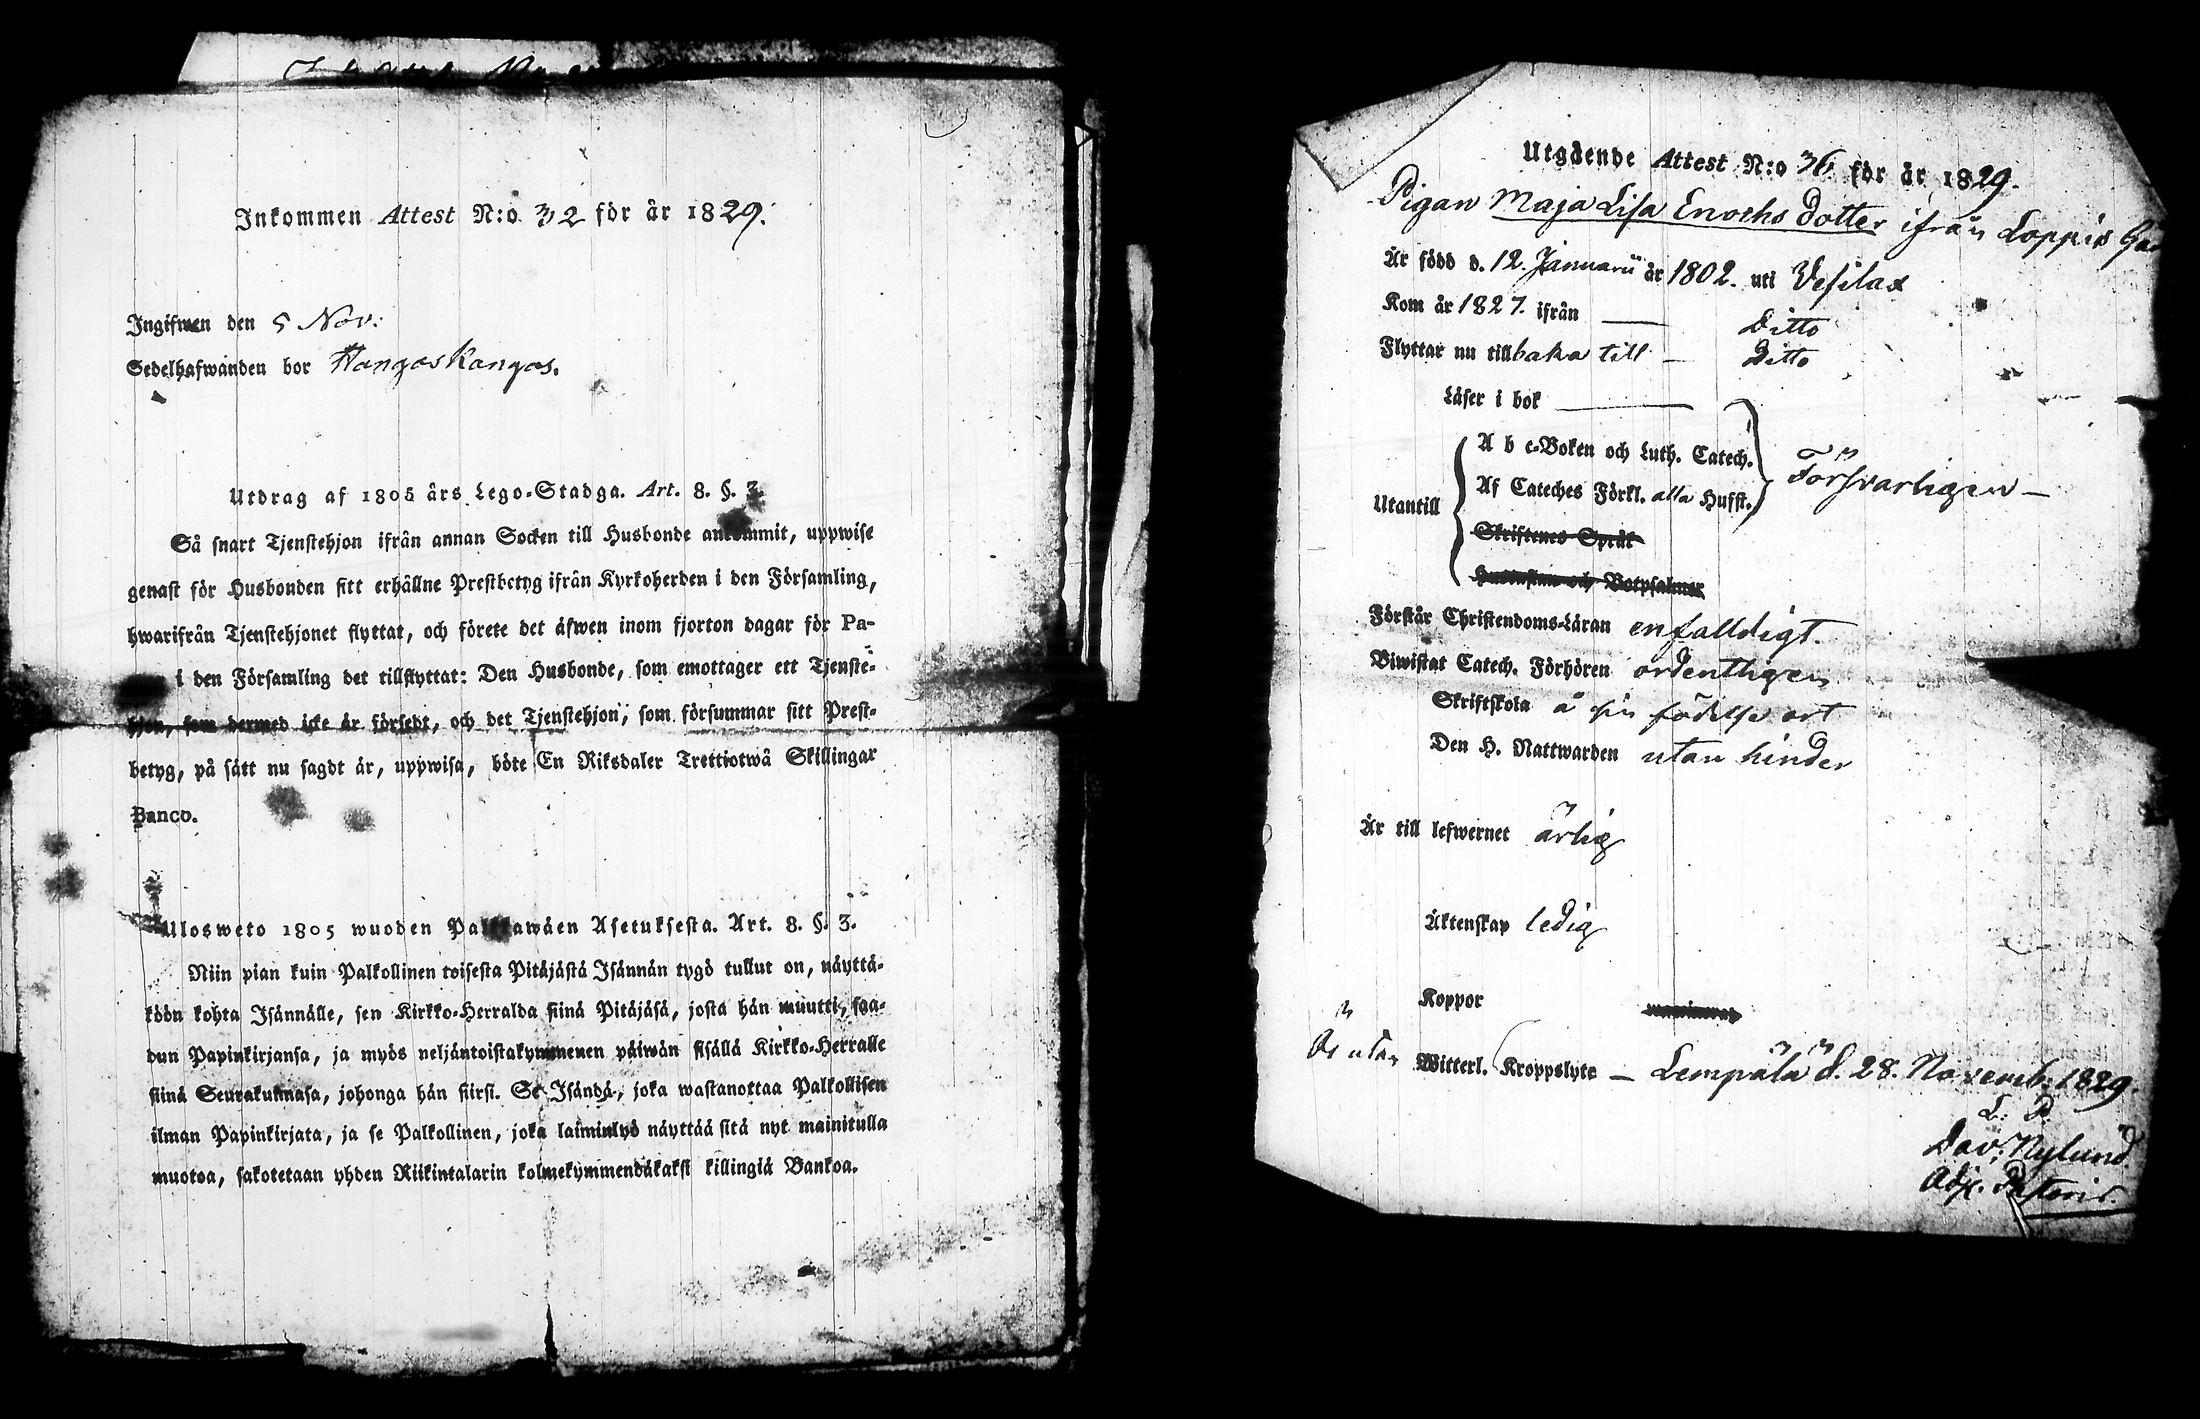 Inkommen Attest N:o 32 för år 1829.
Ingifwen den 5 Nov:
Sedelhafwanden bor Hangaskangas.
Utdrag af 1805 års Lego-Stadga. Art. 8. §. 3.
Så snart Tjenstehjon ifrån annan Socken till Husbonde ankommit, uppwise
genast för Husbonden sitt erhållne Prestbetyg ifrån Kyrkoherden i den Församling,
hwarifrån Tjenstehjonet flyttat, och förete det äfwen inom fjorton dagar för Pa-
i den Församling det tillflyttat: Den Husbonde, som emottager ett Tjenste-
hjon, som dermed icke är försedt, och det Tjenstehjon, som försummar sitt Prest-
betyg, på sätt nu sagdt är, uppwisa, böte En Riksdaler Trettiotwå Skillingar
Banco.
Ulosweto 1805 wuoden Palkkawäen Asetuksesta. Art. 8. §. 3.
Niin pian kuin Palkollinen toisesta Pitäjästä Isännän tygö tullut on, näyttä-
köön kohta Isännälle, sen Kirkko-Herralda siinä Pitäjäsä, josta hän muutti, saa-
dun Papinkirjansa, ja myös neljäntoistakymmenen päiwän sisällä Kirkko-Herralle
siinä Seurakunnasa, johonga hän siirsi. Se Isändä, joka wastanottaa Palkollisen
ilman Papinkirjata, ja se Palkollinen, joka laiminlyö näyttää sitä nyt mainitulla
muotoa, sakotetaan yhden Riikintalarin kolmekymmendäkaksi killingiä Bankoa.
Utgående Attest N:o 36 för år 1829.
Pigan Maja Lisa Enochs dotter ifrån Loppis
Är född d. 12. Januarii år 1802. uti Vesilax
Kom år 1827. ifrån — Ditto
Flyttar nu tillbaka till — Ditto
Läser i bok —
Utantill
A b c-Boken och Luth. Catech.
Af Cateches Förkl. alla Hufst.
Försvarligen —
Skriftenes Språk
Hustaflan och Botpsalmer
Förstår Christendoms-Läran enfalldigt.
Biwistat Catech. Förhören ordentligen
Skriftskola å sin födelse ort
Den H. Nattwarden utan hinder
Är till lefwernet ärlig
Äktenskap ledig
Koppor
Är utan Witterl. Kroppslyte — Lempälä d. 28. Novemb: 1829.
L. P.
Dav: Nylund.
Adj. Pastoris